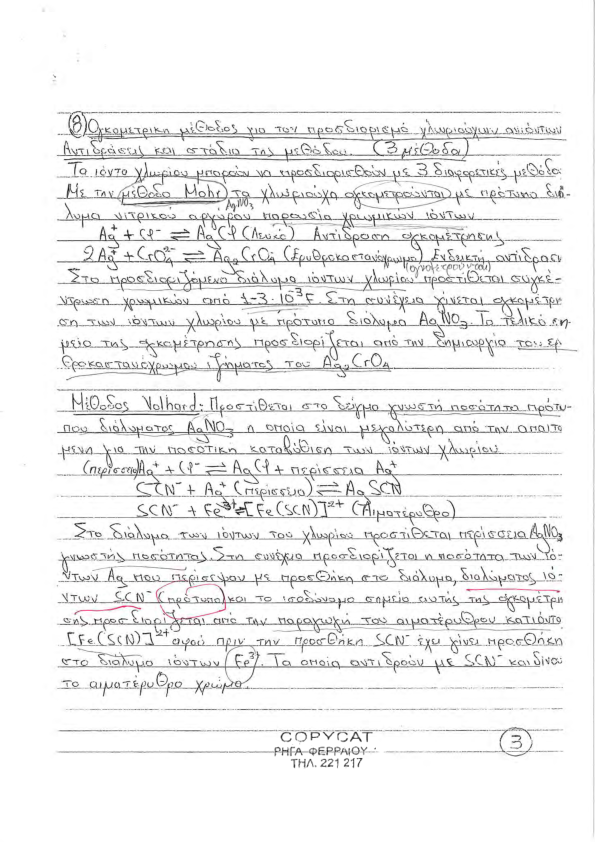 ⑧ Ογκομετρικη μέθοδος για τον προσδιορισμό χλωριούχων ανιόντων
Αντιδράσεις και στάδια της μεθόδου. (3 μέθοδοι)
Τα ιόντα χλωρίου μπορούν να προσδιορισθούν με 3 διαφορετικές μεθόδο
Με την μέθοδο Mohr τα χλωριούχα ογκομετρούνται με πρότυπο διά-
λυμα νιτρικού αργύρου παρουσία χρωμικών ιόντων
AgNO3
Ag⁺ + Cl⁻ ⇌ AgCl (Λευκό) Αντίδραση ογκομέτρησης
2Ag⁺ + CrO₄²⁻ ⇌ Ag₂CrO₄ (Ερυθροκαστανόχρωμο) Ενδεικτ. αντίδραση
(ογκομετρούνται)
Στο προσδιοριζόμενο διάλυμα ιόντων χλωρίου προστίθεται συγκέ-
ντρωση χρωμικών από 1-3·10⁻³F. Στη συνέχεια γίνεται ογκομέτρη
ση των ιόντων χλωρίου με πρότυπο διάλυμα AgNO₃. Το τελικό ση
μείο της ογκομέτρησης προσδιορίζεται από την δημιουργία του ερ
θροκαστανόχρωμου ιζήματος του Ag₂CrO₄
Μέθοδος Volhard: Προστίθεται στο δείγμα γνωστή ποσότητα πρότυ-
που διαλύματος AgNO₃ η οποία είναι μεγαλύτερη από την απαιτο
μενη για την ποσοτική καταβύθιση των ιόντων χλωρίου
(περίσσεια)Ag⁺ + Cl⁻ ⇌ AgCl + περίσσεια Ag⁺
SCN⁻ + Ag⁺ (περίσσεια) ⇌ AgSCN
SCN⁻ + Fe³⁺ ⇌ [Fe(SCN)]²⁺ (Αιματέρυθρο)
Στο διάλυμα των ιόντων του χλωρίου προστίθεται περίσσεια AgNO₃
γνωστής ποσότητας. Στη συνέχεια προσδιορίζεται η ποσότητα των ιό-
ντων Ag που περίσεψαν με προσθήκη στο διάλυμα, διαλύματος ιό-
ντων SCN⁻ (πρότυπο) και το ισοδύναμο σημείο αυτής της ογκομέτρη
σης προσδιορίζεται από την παραγωγή του αιματέρυθρου κατιόντο
[Fe(SCN)]²⁺ αφού πριν την προσθήκη SCN⁻ έχει γίνει προσθήκη
στο διάλυμα ιόντων Fe³⁺. Τα οποία αντιδρούν με SCN⁻ και δίνου
το αιματέρυθρο χρώμα.
COPYCAT
ΡΗΓΑ ΦΕΡΡΑΙΟΥ
ΤΗΛ. 221 217
③